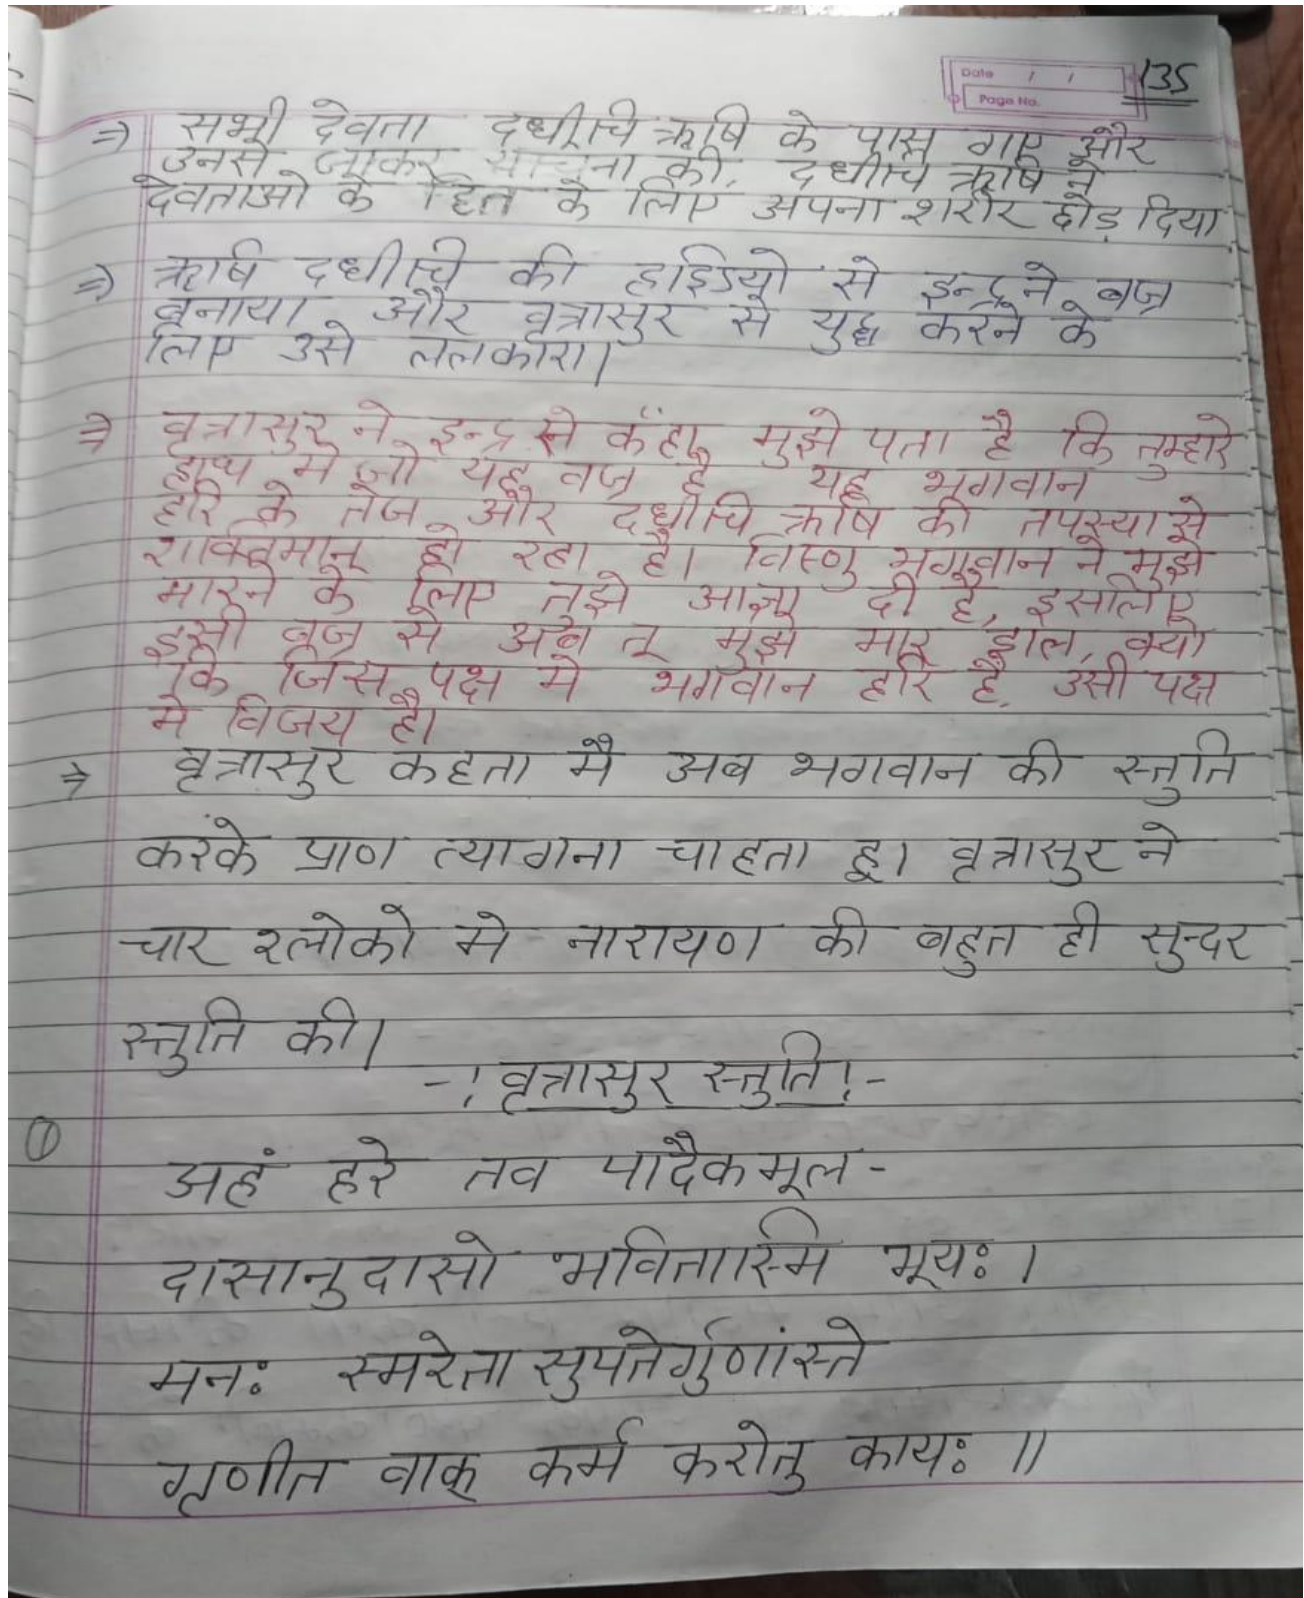 Date / / 135
Page No.
⇒ सभी देवता दधीचि ऋषि के पास गए और
उनसे जाकर याचना की, दधीचि ऋषि ने
देवताओ के हित के लिए अपना शरीर छोड़ दिया
⇒ ऋषि दधीचि की हड्डियो से इन्द्र ने बज्र
बनाया और वृत्रासुर से युद्ध करने के
लिए उसे ललकारा।
⇒ वृत्रासुर ने इन्द्र से कँहा, मुझे पता है कि तुम्हारे
हाथ मे जो यह वज्र है यह भगवान
हरि के तेज और दधीचि ऋषि की तपस्या से
शक्तिमान् हो रहा है। विष्णु भगवान ने मुझे
मारने के लिए तुझे आज्ञा दी है, इसलिए
इसी वज्र से अब तू मुझे मार डाल, क्यो
कि जिस पक्ष मे भगवान हरि है, उसी पक्ष
मे विजय है।
⇒ वृत्रासुर कहता मै अब भगवान की स्तुति
करके प्राण त्यागना चाहता हू। वृत्रासुर ने
चार श्लोको मे नारायण की बहुत ही सुन्दर
स्तुति की।
-: वृत्रासुर स्तुति :-
① अहं हरे तव पादैकमूल -
दासानुदासो भवितास्मि भूयः ।
मनः स्मरेता सुपतेर्गुणांस्ते
गृणीत वाक् कर्म करोतु कायः ॥